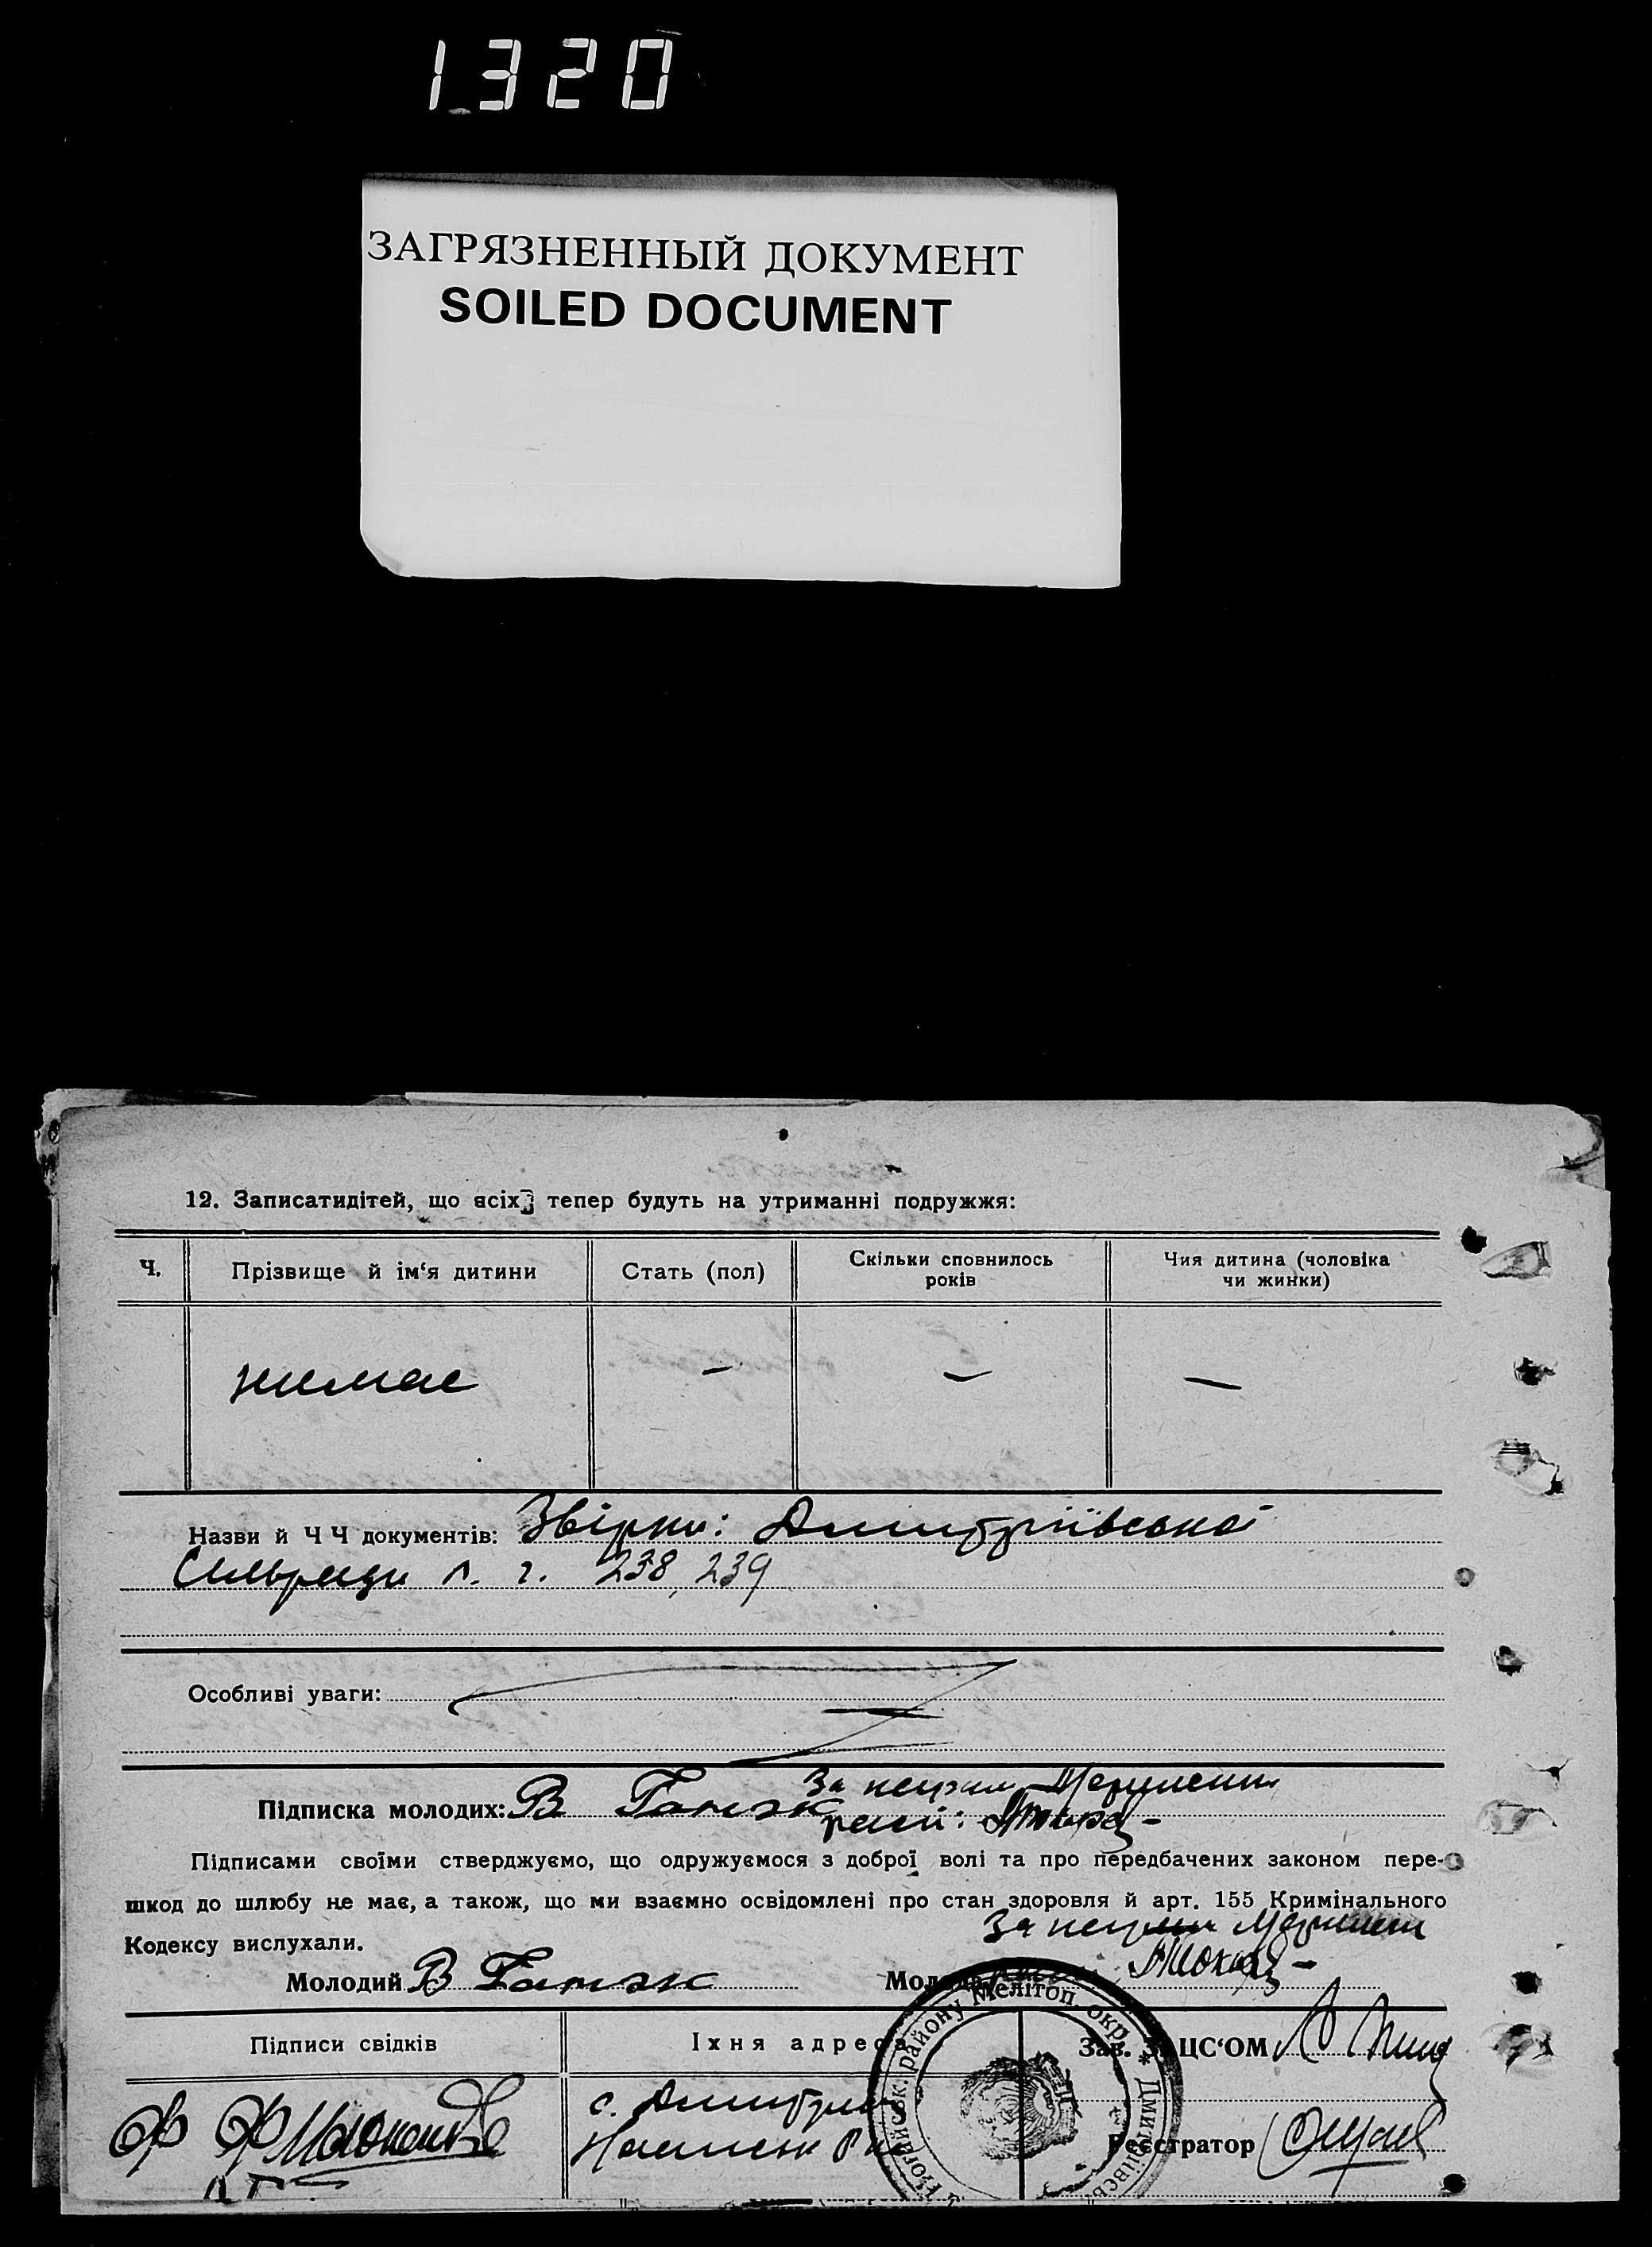 1320
ЗАГРЯЗНЕННЫЙ ДОКУМЕНТ
SOILED DOCUMENT
12. Записатидітей, що всіх тепер будуть на утриманні подружжя:
Ч. Прізвище й ім‘я дитини Стать (пол) Скільки сповнилось років Чия дитина (чоловіка чи жинки)
нимае — — —
Назви й Ч Ч документів: Звірки: Дмитріївської
Сільради л. г. 238, 239
Особливі уваги:
Підписка молодих: В За неграм
Підписами своїми стверджуємо, що одружуємося з доброї волі та про передбачених законом пере-
шкод до шлюбу не має, а також, що ми взаємно освідомлені про стан здоровля й арт. 155 Кримінального
Кодексу вислухали.
За неграм
Молодий В Молода
Підписи свідків Іхня адреса Зав. ЗАЦС‘ОМ
с. Дмитрів
Реєстратор
Ногайськ. району Мелітоп. окр. * Дмитріївсь